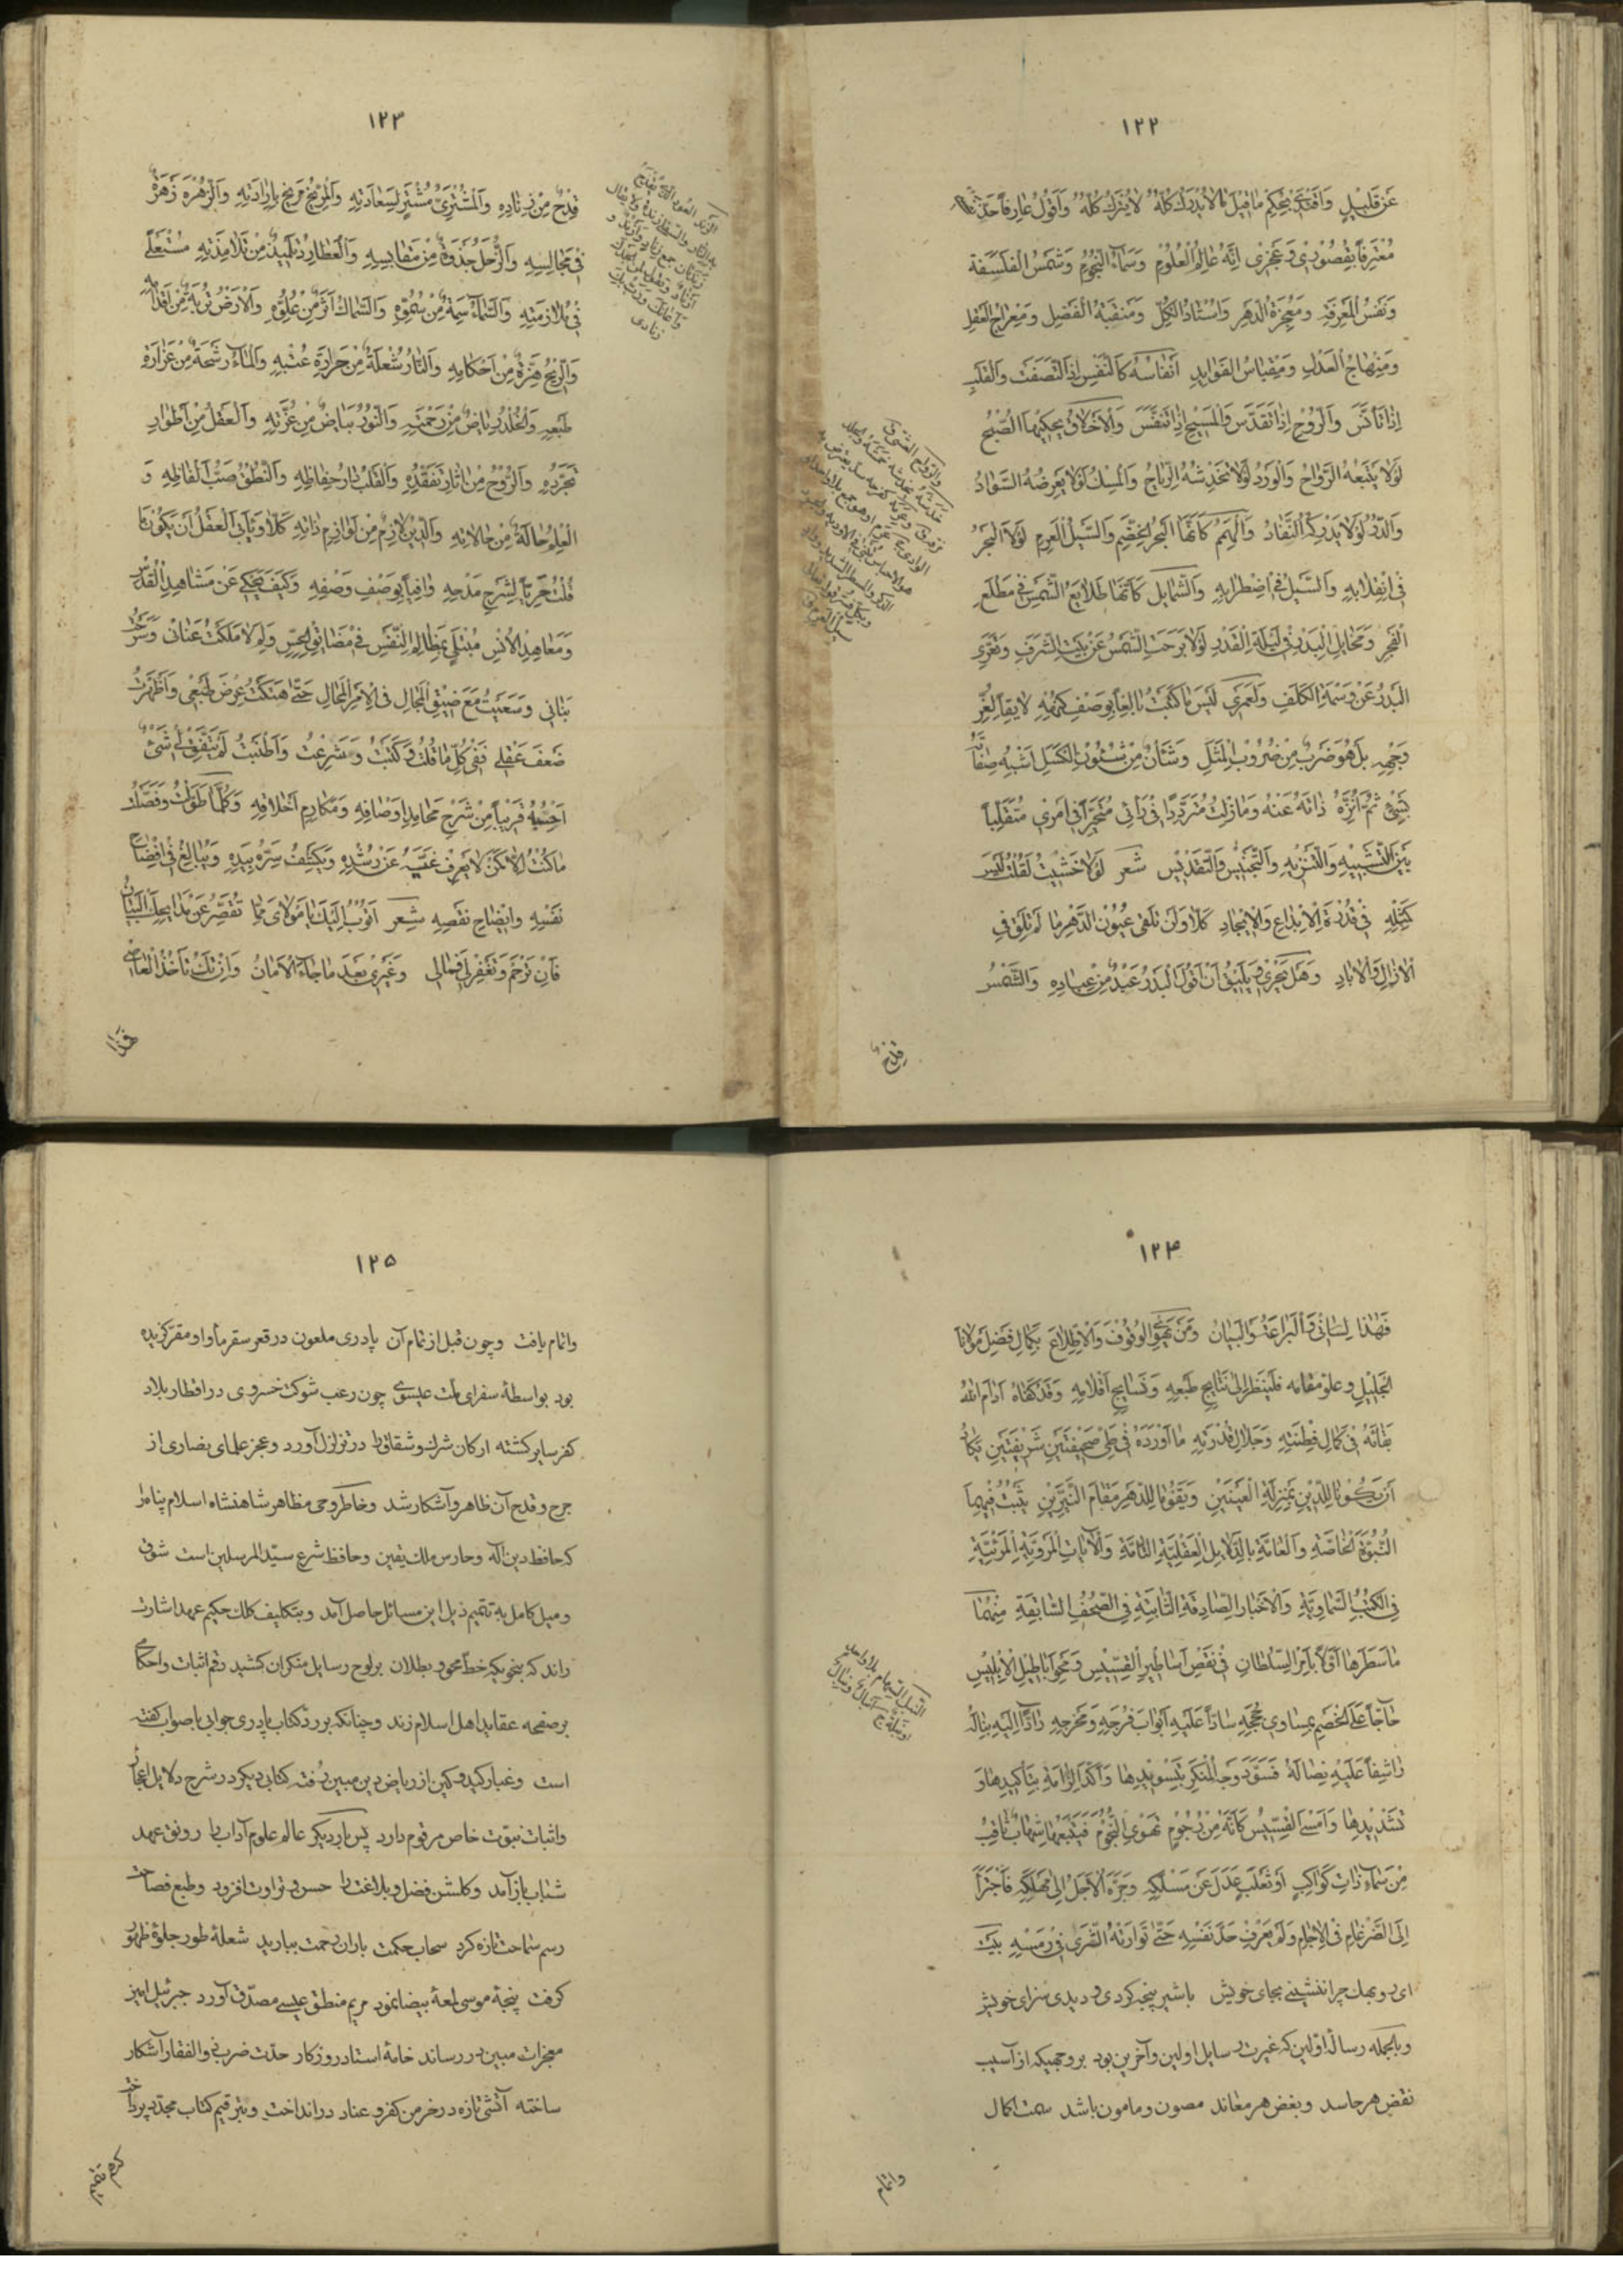 ١٢٢
عَنْ قَلِيلٍ وَاَفْتَتِحُ بِحُكْمِ مَا قِيلَ مَا لَا يُدْرَكُ كُلُّهُ لَا يُتْرَكُ كُلُّهُ وَاَقُولُ عَارِفاً
مُعْتَرِفاً بِقُصُورِى وَعَجْزِى اِنَّهُ عَالَمُ الْعُلُومِ وَسَمَاءُ النُّجُومِ وَشَمْسُ الْفَلْسَفَةِ
وَنَفْسُ الْمَعْرِفَةِ وَمُعْجِزَةُ الدَّهْرِ وَاُسْتَادُ الْكُلِّ وَمَنْقَبَةُ الْفَضْلِ وَمِعْرَاجُ الْعَقْلِ
وَمِنْهَاجُ الْعَدْلِ وَمِقْيَاسُ الْفَوَايِدِ اَنْفَاسُهُ كَالنَّفْسِ اِذَا اتَّصَفَتْ وَالْقَلْبِ
اِذَا تَأَثَّرَ وَالرُّوحِ اِذَا تَقَدَّسَ وَالْمَسِيحِ اِذَا تَنَفَّسَ وَالْاَخْلَاقُ يَحْكِيهَا الصُّبْحُ
لَوْلَا يَتْبَعُهُ الرَّوَاحُ وَالْوَرْدُ لَوْلَا تَخْدِشُهُ الرِّيَاحُ وَالْمِسْكُ لَوْلَا يَعْرِضُهُ السَّوَادُ
وَالدُّرُّ لَوْلَا يُدْرِكُهُ النَّفَادُ وَالْهِمَمُ كَاَنَّهَا الْبَحْرُ الْخِضَمُّ وَالسَّيْلُ الْعَرِمُ لَوْلَا الْبَحْرُ
فِى انْقِلَابِهِ وَالسَّيْلُ فِى اضْطِرَابِهِ وَالشَّمَايِلُ كَاَنَّهَا طَلَايِعُ الشَّمْسِ فِى مَطْلَعِ
الْفَجْرِ وَمَخَايِلُ الْبَدْرِ فِى لَيْلَةِ الْقَدْرِ لَوْلَا بَرِحَتِ الشَّمْسُ عَنْ بَيْتِ الشَّرَفِ وَتَعَرَّى
الْبَدْرُ عَنْ وَسْمَةِ الْكَلَفِ وَلَعَمْرِى لَيْسَ مَا كَتَبْتُ بَالِغاً بِوَصْفِ كُنْهِهِ لَايِقاً لِغُرِّ
وَجْهِهِ بَلْ هُوَ ضَرْبٌ مِنْ ضُرُوبِ الْمَثَلِ وَشَأْنٌ مِنْ شُئُونِ الْكَسَلِ اُشَبِّهُ صِفَاتَهُ
بِشَىْءٍ ثُمَّ اُنَزِّهُ ذَاتَهُ عَنْهُ وَمَا زِلْتُ مُتَرَدِّدًا فِى رَأْئِى مُتَحَيِّراً فِى اَمْرِى مُتَقَلِّباً
بَيْنَ التَّشْبِيهِ وَالتَّنْزِيهِ وَالتَّجْنِيسِ وَالتَّقْدِيسِ شعر لَوْلَا خَشِيتُ لَقُلْتُ لَيْسَ
كَمِثْلِهِ فِى قُدْرَةِ الْاِبْدَاعِ وَالْاِيجَادِ كَلَّا وَلَنْ تَلْقَى عُيُونُ الدَّهْرِ مَا لَمْ تَلْقَ فِى
الْآزَالِ وَالْآبَادِ وَهَلْ يَجْرِى وَيَلِيقُ اَنْ اَقُولَ الْبَدْرُ عَبْدٌ مِنْ عِبَادِهِ وَالشَّمْسُ
قِدْحٌ
١٢٣
قِدْحٌ مِنْ زِنَادِهِ وَالْمُشْتَرِىُّ مُشْتَرٍ لِسَعَادَتِهِ وَالْمِرِّيخُ مَرِيخٌ بِاِرَادَتِهِ وَالزُّهْرَةُ زَهْرَةٌ
فِى مَجَالِسِهِ وَالزُّحَلُ جَذْوَةٌ مِنْ مَقَابِسِهِ وَالْعُطَارِدُ تِلْمِيذٌ مِنْ تَلَامِذَتِهِ مُشْتَعِلٌ
فِى مُلَازَمَتِهِ وَالسَّمَاءُ سِمَةٌ مِنْ سُمُوِّهِ وَالسِّمَاكُ اَثَرٌ مِنْ عُلُوِّهِ وَالْاَرْضُ تُرْبَةٌ مِنْ اَقْدَامِهِ
وَالرِّيحُ هِزَّةٌ مِنْ اَحْكَامِهِ وَالنَّارُ شُعْلَةٌ مِنْ حَرَارَةِ عَتْبِهِ وَالْمَاءُ رَشْحَةٌ مِنْ غَزَارَةِ
طَبْعِهِ وَالْخُلْدُ رِيَاضٌ مِنْ رَحْمَتِهِ وَالنُّورُ بَيَاضٌ مِنْ غُرَّتِهِ وَالْعَقْلُ مِنْ اَطْوَارِ
تَجَرُّدِهِ وَالرُّوحُ مِنْ اٰثَارِ تَفَقُّدِهِ وَالْقَلْبُ دَارُ حِفَاظِهِ وَالنُّطْقُ صَبُّ اَلْفَاظِهِ وَ
الْعِلْمُ حَالَةٌ مِنْ حَالَاتِهِ وَالدِّينُ لَازِمٌ مِنْ لَوَازِمِ ذَاتِهِ كَلَّا وَيَأْبَى الْعَقْلُ اَنْ يَكُونَ مَا
قُلْتُ حَرِيّاً لِشَرْحِ مَدْحِهِ وَافِياً بِوَصْفِ وَصْفِهِ وَكَيْفَ يَحْكِى عَنْ مَشَاهِدِ الْقُدْسِ
وَمَعَاهِدِ الْاُنْسِ مُبْتَلًى بِمَظَالِمِ النَّفْسِ فِى مَضَائِقِ الْحِسِّ وَلِمَ لَا مَلَكْتُ عِنَانِى وَسَخَّرْتُ
بَنَانِى وَسَعَيْتُ مَعَ ضِيقِ الْمَجَالِ فِى الْاَمْرِ الْمُحَالِ حَتَّى هَتَكْتُ عِرْضَ طَبْعِى وَاَظْهَرْتُ
ضَعْفَ عَقْلِى فَفِى كُلِّ مَا قُلْتُ وَكَتَبْتُ وَشَرَعْتُ وَاَطْنَبْتُ لَمْ يَتَّفِقْ لِى شَىْءٌ
اَحْسِبُهُ قَرِيباً مِنْ شَرْحِ مَحَامِدِ اَوْصَافِهِ وَمَكَارِمِ اَخْلَاقِهِ وَكُلَّمَا طَوَّلْتُ وَفَصَّلْتُ
مَا كُنْتُ اِلَّا كَمَنْ لَا يَعْرِفُ غَيَّهُ عَنْ رُشْدِهِ وَيَكْشِفُ سِرَّهُ بِيَدِهِ وَيُبَالِغُ فِى افْتِضَاحِ
نَفْسِهِ وَايضَاحِ نَقْصِهِ شعر اَتُوبُ اِلَيْكَ يَا مَوْلَاىَ مِمَّا تُقَصِّرُ عَنْ مَدَايِحِكَ الْبَيَانُ
فَاِنْ تَرْحَمْ وَتَغْفِرْ لِى فَمَالِى وَغَيْرِى بَعْدَ مَا جَاءَ الْاَمَانُ وَاِنْ تَكُ تَأْخُذُ الْعَاصِى
فَهٰذَا
١٢٤
فَهٰذَا لِسَانِى وَالْبَرَاعَةُ وَالْبَيَانُ وَمَنْ يَهْوَى الْوُقُوفَ وَالْاِطِّلَاعَ بِكَمَالِ فَضْلِ مَوْلَانَا
الْجَلِيلِ وَعُلُوِّ مَقَامِهِ فَلْيَنْظُرْ اِلَى نَتَايِجِ طَبْعِهِ وَنَسَايِجِ اَقْلَامِهِ وَقَدْ كَفَاهُ اَدَامَ اللّٰهُ
بَقَائَهُ فِى كَمَالِ فِطْنَتِهِ وَجَلَالِ قُدْرَتِهِ مَا اَوْرَدَهُ فِى طَىِّ صَحِيفَتَيْنِ شَرِيفَتَيْنِ يَكَادُ
اَنْ يَكُونَا لِلدِّينِ بِمَنْزِلَةِ الْعَيْنَيْنِ وَيَقُومَا لِلدَّهْرِ مَقَامَ النَّيِّرَيْنِ يُثْبِتُ فِيهِمَا
النُّبُوَّةَ الْخَاصَّةَ وَالْعَامَّةَ بِالدَّلَايِلِ الْعَقْلِيَّةِ التَّامَّةِ وَالْآيَاتِ الْمَرْوِيَّةِ الْمَرْئِيَّةِ
فِى الْكُتُبِ السَّمَاوِيَّةِ وَالْاَخْبَارِ الصَّادِقَةِ الثَّابِتَةِ فِى الصُّحُفِ السَّابِقَةِ مِنْهُمَا
مَا سَطَرَهَا اَوَّلاً بِاَمْرِ السُّلْطَانِ فِى نَقْضِ اَسَاطِيرِ الْقِسِّيسِ وَمَحْوِ اَبَاطِيلِ الْاِبْلِيسِ
حَاجّاً عَلَى الْخَصْمِ بِمَسَاوِى حُجَجِهِ سَادّاً عَلَيْهِ اَبْوَابَ فُرَجِهِ وَمَخْرَجِهِ رَادّاً اِلَيْهِ نِبَالَهُ
رَاشِقاً عَلَيْهِ نِصَالَهُ فَسَوَّدَ وَجْهَ الْمُنْكَرِ بِتَسْوِيدِهَا وَاَكَّدَ اِلْزَامَهُ بِتَأْكِيدِهَا وَ
تَشْدِيدِهَا وَاَمْسَى الْقِسِّيسُ كَاَنَّهُ مِنْ رُجُومٍ تَهْوِى النُّجُومُ فَيَتْبَعُهَا شِهَابٌ ثَاقِبٌ
مِنْ سَمَاءٍ ذَاتِ كَوَاكِبَ اَوْ ثَعْلَبٍ عَدَلَ عَنْ مَسْلَكِهِ وَجَرَّهُ الْاَجَلُ اِلَى مَهْلَكِهِ فَاجْتَرَأَ
اِلَى الضِّرْغَامِ فِى الْآجَامِ وَلَمْ يَعْرِفْ حَدَّ نَفْسِهِ حَتَّى تَوَارَتْهُ الثَّرَى فِى رَمْسِهِ بيت
اى روبهك چرا ننشينى بجاى خويش با شير پنجه كردى و ديدى سزاى خويش
وبالجمله رسالهٔ اولين كه غيرت رسايل اولين وآخرين بود بروجهيكه از آسيب
نقض هر حاسد وبغض هر معاند مصون و مامون باشد سمت اكمال
واتمام
١٢٥
واتمام يافت وچون قبل از تمام آن پادرى ملعون در قعر سقر مأوا و مقر گزيده
بود بواسطهٔ سفراى ملت عيسوى چون رعب شوكت خسروى در اقطار بلاد
كفر ساير گشته اركان شرك و شقاق را در تزلزل آورد و عجز علماى نصارى از
جرح و قدح آن ظاهر و آشكار شد وخاطر وحى مظاهر شاهنشاه اسلام پناه را
كه حافظ دين اله وحارس ملك يقين وحافظ شرع سيّد المرسلين است شوق
وميل كامل به تتميم ذيل اين مسائل حاصل آمد وبتكليف كلك حكيم عهد اشارت
راند كه بنحويكه خط محو و بطلان بر لوح رسايل منكران كشيد رقم اثبات واحكام
بر صفحه عقايد اهل اسلام زند وچنانكه بر رد كتاب پادرى جوابى با صواب گفته
است وغبار كيد و كين از رياض دين مبين رفته كتابى ديگر در شرح دلايل اعجاز
واثبات نبوّت خاص مرقوم دارد پس بار ديگر عالم علوم آداب را رونق عهد
شباب باز آمد وگلشن فضل و بلاغت را حسن و تراوت افزود وطبع فصاحت
رسم سماحت تازه كرد سحاب حكمت باران رحمت بباريد شعلهٔ طور جلوهٔ ظهور
گرفت پنجهٔ موسى لمعهٔ بيضا نمود مريم منطق عيسى مصدّق آورد جبرئيل امين
معجزات مبين در رساند خامهٔ استاد روزگار حدّت ضرب ذوالفقار آشكار
ساخته آتشى تازه در خرمن كفر و عناد در انداخت وبترقيم كتاب مجدّد پرداخت